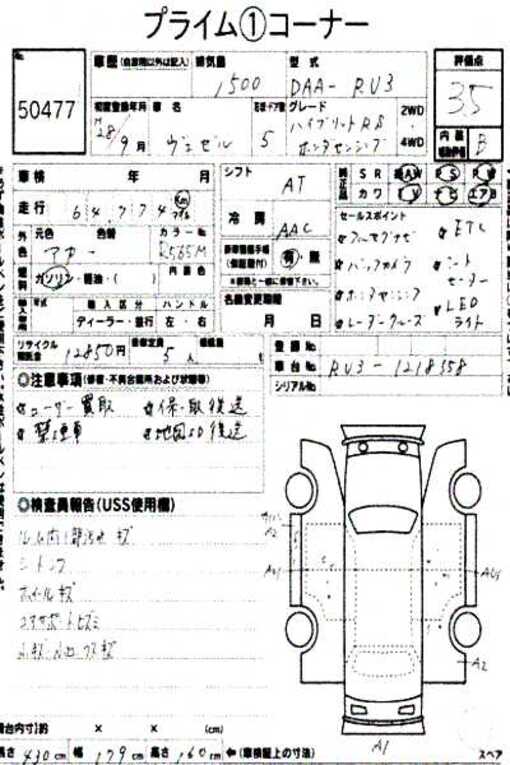 プライム①コーナー
No.
50477
車歴 (自家用以外は記入) 排気量 1500 型式 DAA-RU3
評価点 3.5
初度登録年月 H28/9月 車名 ヴェゼル 5 グレード ハイブリッドRS ホンダセンシング 2WD・4WD
内装 B
車検 年 月
シフト AT
純正品 SR AW PS PW
カワ TV ナビ エアB
走行 64,774 Km マイル
冷房 AAC
セールスポイント
外色 元色 色替 カラーNo.
アカ R565M
フルセグナビ ETC
バックカメラ シートヒーター
ホンダセンシング LED
レーダークルーズ ライト
燃料 ガソリン・軽油・( ) 内装色
(保証書付) 有・無
輸入車 年式 輸入区分 ハンドル
ディーラー・並行 左・右
名義変更期限
月 日
リサイクル預託金 12850円 乗車定員 5人 積載量
登録No.
車台No. RU3-1218358
シリアルNo.
◎注意事項(修復・不具合箇所および状態等)
ユーザー買取 保・取後送
禁煙車 地図SD後送
◎検査員報告(USS使用欄)
ルーム内1部汚れ キズ
ホイールキズ
A2
A2
A1
スペア
車台内寸)約 × × (cm)
長さ 430cm 幅 179cm 高さ 160cm ←(車検証上の寸法)